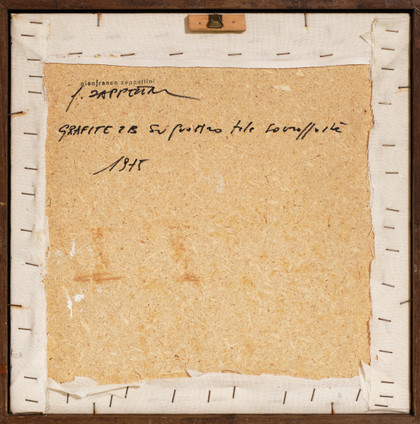 gianfranco zappettini
G. ZAPPETTINI
GRAFITE 2B su quattro tele sovrapposte
1975